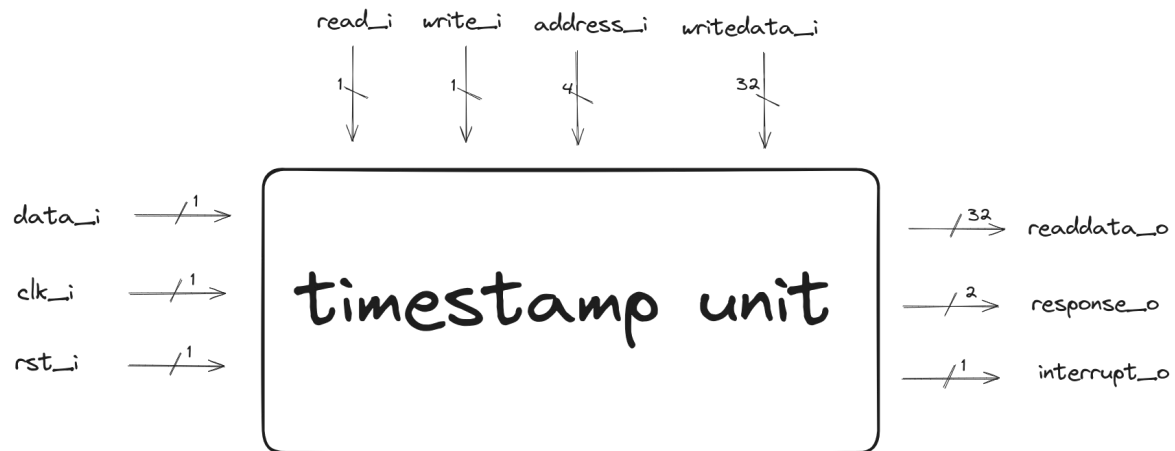 read_i write_i address_i writedata_i
1 1 4 32
data_i 1
clk_i 1
rst_i 1
timestamp unit
32 readdata_o
2 response_o
1 interrupt_o